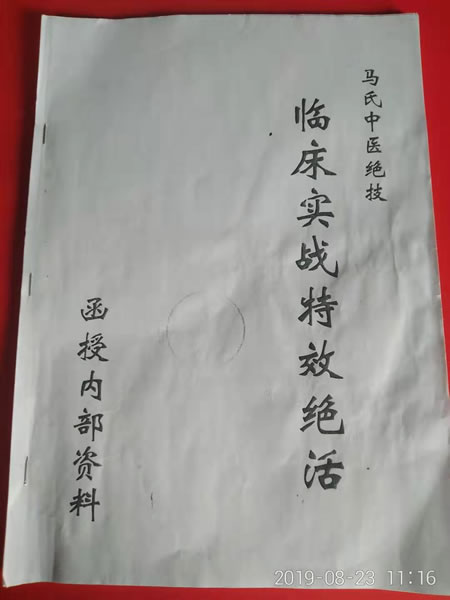 马氏中医绝技
临床实战特效绝活
函授内部资料
2019-08-23 11:16